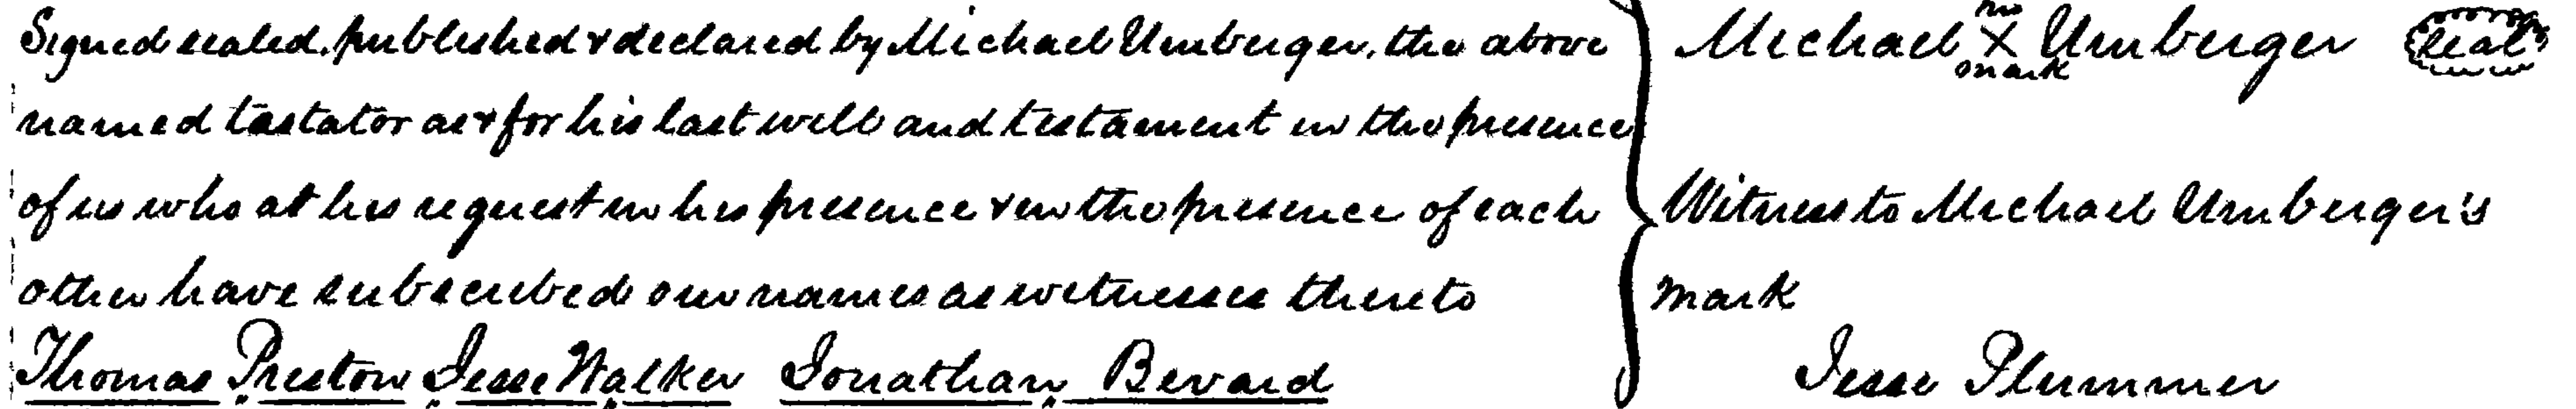 Signed sealed, published & declared by Michael Umberger, the above
named tastator as & for his last will and testament in the presence
of us who at his request in his presence & in the presence of each
other have subscribed our names as witnesses thereto
Thomas Preston Jesse Walker Jonathan Bevard
his
Michael X Umberger Seal
mark
Witness to Michael Umberger's
mark
Jesse Plummer